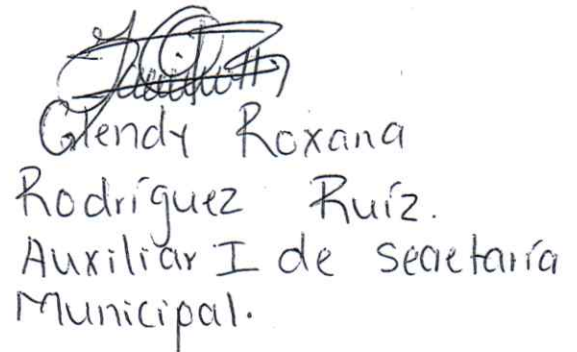 Glendy Roxana
Rodríguez Ruíz.
Auxiliar I de Secretaría
Municipal.